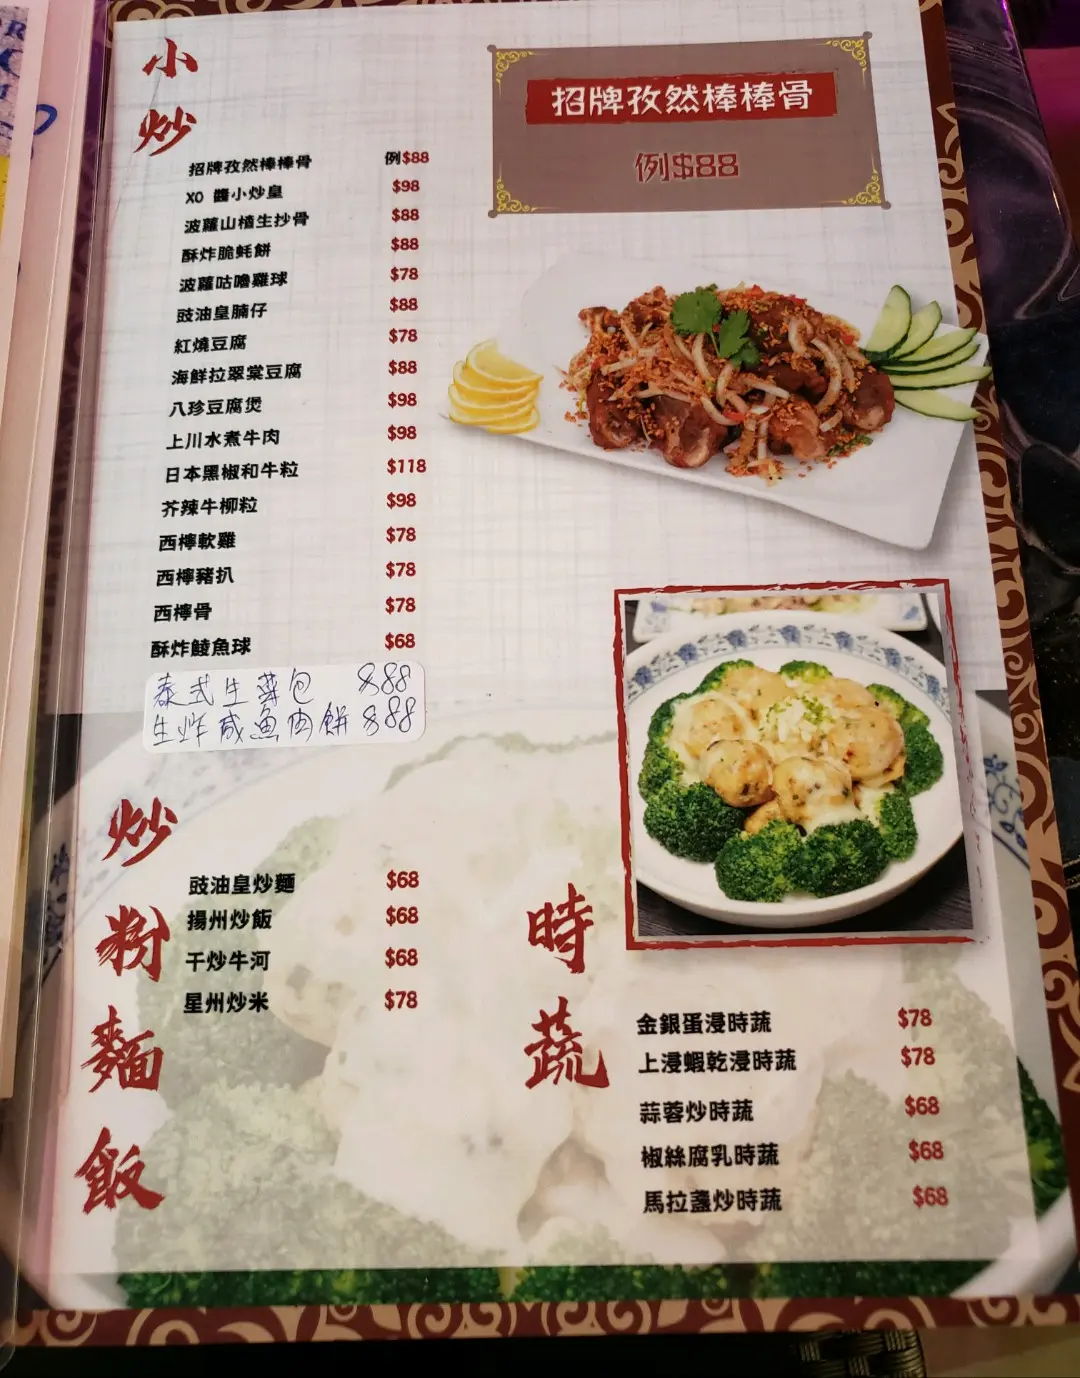 小炒
招牌孜然棒棒骨 例$88
XO 醬小炒皇 $98
波蘿山楂生抄骨 $88
酥炸脆蚝餅 $88
波蘿咕嚕雞球 $78
豉油皇腩仔 $88
紅燒豆腐 $78
海鮮拉翠棠豆腐 $88
八珍豆腐煲 $98
上川水煮牛肉 $98
日本黑椒和牛粒 $118
芥辣牛柳粒 $98
西檸軟雞 $78
西檸豬扒 $78
西檸骨 $78
酥炸鯪魚球 $68
泰式生菜包 $88
生炸咸魚肉餅 $88
招牌孜然棒棒骨
例$88
炒粉麵飯
豉油皇炒麵 $68
揚州炒飯 $68
干炒牛河 $68
星州炒米 $78
時蔬
金銀蛋浸時蔬 $78
上浸蝦乾浸時蔬 $78
蒜蓉炒時蔬 $68
椒絲腐乳時蔬 $68
馬拉盞炒時蔬 $68